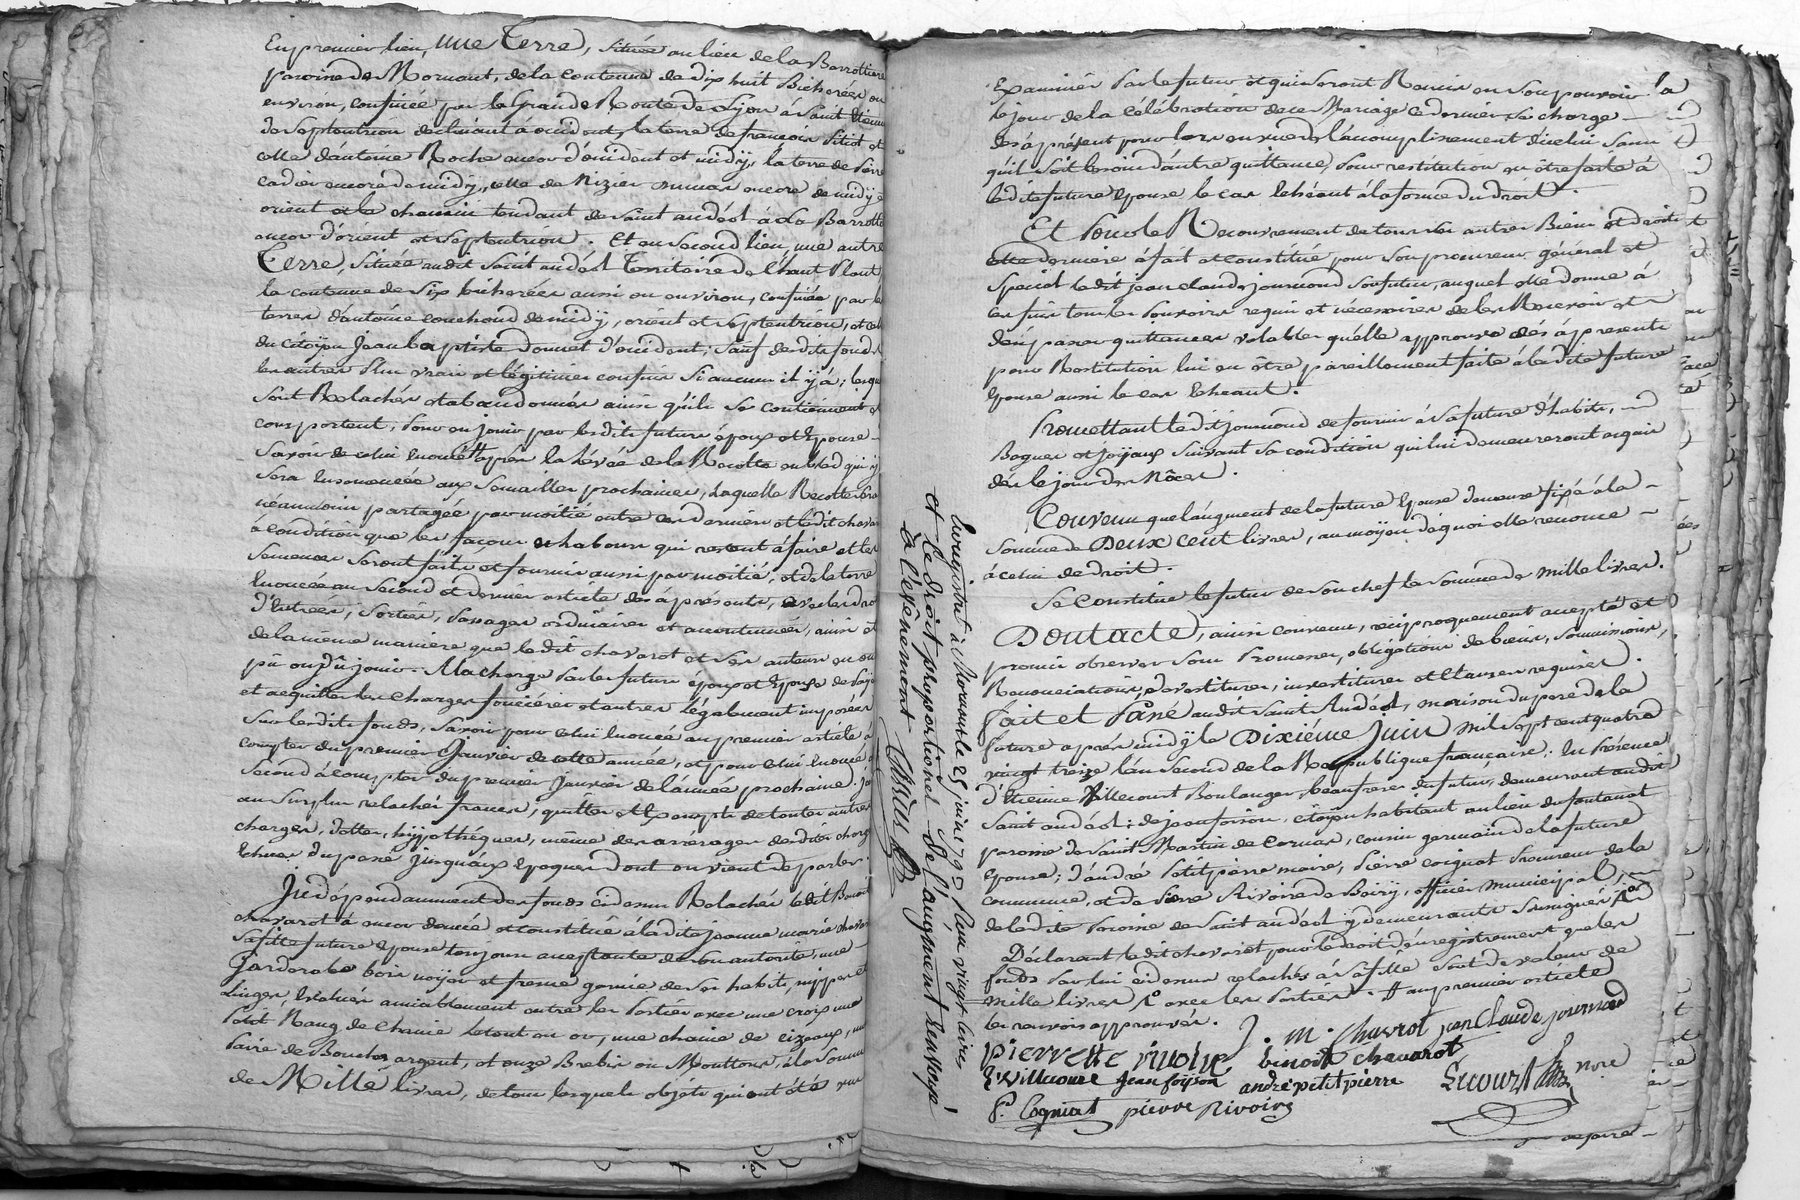 En premier lieu, une Terre, située au lieu de la Barrottiere
paroisse de Mornant, de la contenue de dix huit Bicherées ou
environ, confinée par la Grande Route de Lyon à Saint Etienne
de Septentrion déclinant à occident, la terre de françois Pitiot et
celle d'antoine Roche encor d'occident et midÿ, la terre de Pierre
encore de midÿ, celle de Nizier encore de midÿ &
orient et le chemin tendant de Saint andéol à La Barrotte
encor d'orient et Septentrion. Et en Second lieu, une autre
Terre, Située audit Saint andéol Territoire de
la contenue de Six bicherées aussi ou environ, confinée par les
terres d'antoine couchoud de midÿ, orient et Septentrion, et
du citoÿen Jean baptiste Donnet d'occident; Sauf desdits fonds
les autres Plus vrais et légitimes confins Si aucuns il ÿ à; lesquels
Sont Relachés et abandonnés ainsi qu'ils Se contiennent et
comportent, Pour en jouir par lesdits future époux et Epouse
Savoir de celui Enoncé après la Lévée de la Recolte en bled qui ÿ
Sera Ensemencée aux Semailles prochaines, Laquelle Recolte Sera
néanmoins partagée par moitié entre ces derniers et ledit chavarot
à condition que les façons et Labours qui restent à faire et les
Semences Seront faits et fournis aussi par moitié, et de la terre
Enoncée au Second et dernier article dès à présents, avec les droits
d'Entrées, Sorties, Passages ordinaires et accoutumés, ainsi et
de la même maniere que ledit chavarot et Ses auteurs en ont
pû ou dû jouir. A la charge Par les future époux et Epouse de Payer
et acquitter les charges foncières et autres Légalement imposées
Sur lesdits fonds, Savoir pour celui Enoncé au premier article à
compter du premier Janvier de cette année, et pour celui Enoncé
Second à compter du premier Janvier de l'année prochaine;
au Surplus relachés francs, quittes et Exempts de toutes autres
charges, dettes, hÿpothéques, même des arrérages desdites charges
Echues du passé jusqu'aux Epoques dont on vient de parler.
Indépendamment des fonds cidessus Relachés ledit Benoit
chavarot à encor donné et constitué à ladite jeanne marie chavarot
Sa fille future Epouse toujours acceptante de Son autorité, une
Garderobe bois noÿer et fresne garnie de Ses habits, nippes et
Linges, Evalués amiablement entre les Parties avec une croix une
Petit Rang de chaine le tout en or, une chaine de cizeaux, une
Paire de Boucles argent, et onze Brebis ou Moutons, à la Somme
de Mille livres, de tous lesquels objéts qui ont été vus
Enregistré à Mornant le 25 juin 1793 Reçu vingt livres
et Le droit proportionel de l'augment renvoyé
à l'evenement.
Examinés Par le futur et qui Seront Remis en Son pouvoir la
le jour de la célébration de ce Mariage ce dernier Se charge
dès à présent pour lors en vue de l'accomplissement d'icelui Sans
qu'il Soit besoin d'autre quittance, Pour restitution en être faite à
ladite future Epouse le cas Echéant à la forme du droit.
Et Pour le Recouvrement de tous Ses autres Biens et droits
cette derniere à fait et constitué pour Son procureur général et
Spécial ledit jean claude journoud Son futur, auquel elle donne à
ces fins tous les Pouvoirs requis et nécessaires de les Recevoir et
d'en passer quittances valables qu'elle approuve dès à présents
pour Restitution lui en être pareillement faite à ladite future
Epouse aussi le cas Echeant.
Promettant ledit journoud de fournir à Sa future d'habits,
Bagues et Joÿaux Suivant Sa condition qui lui demeureront acquis
dès le jour des Nôces.
Convenu que l'augment de la future Epouse demeure fixé à la
Somme de Deux cent livres, au moÿen de quoi elle renonce
à celui de droit.
Se constitue le futur de Son chef la Somme de mille livres.
Dont acte, ainsi convenu, réciproquement accepté et
promis observer Sous Promesses, obligations de biens, Soumissions,
Renonciations, devestitures, investitures et clauses requises.
Fait et Passé audit Saint Andéol, maison du pere de la
future après midÿ le Dixième Juin mil Sept cent quatre
vingt treize l'an Second de la République française; En Présence
d'Etienne Villecourt Boulanger, beaufrere du futur, demeurant audit
Saint andéol; de jean foison, citoÿen habitant au lieu du fontanat
paroisse de Saint Martin de Cornas, cousin germain de la future
Epouse; d'andré Petitpierre maire, Pierre coignat Procureur de la
commune, et de Pierre Rivoire de Boirÿ, officier municipal,
de ladite Paroisse de Saint andéol ÿ demeurants Soussignés
Déclarant ledit chavarot pour le droit d'enregistrement que les
fonds Par lui cidessus relachés à Sa fille Sont de valeur de
mille livres et avec les Parties. # au premier article
les renvois approuvés.
J. m. Chavrot jean Claude journoud
pierrette benoit chavarot
E. Villecourt Jean foison andré petit pierre Lecourt nore
P. Cogniat pierre Rivoire